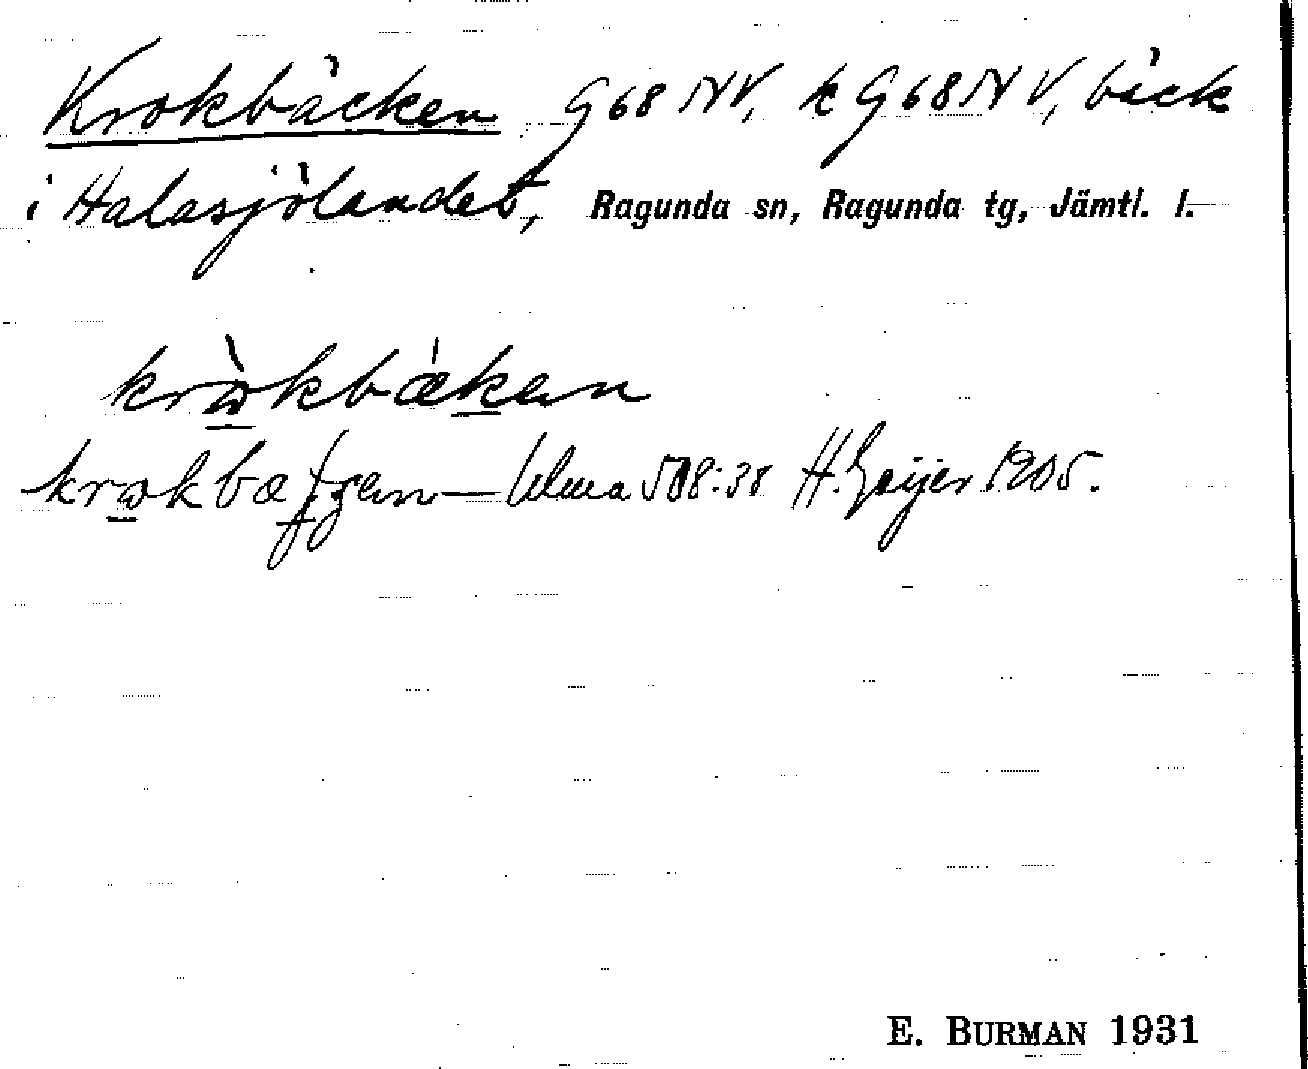 Krokbäcken G68 NV, k G68 NV, bäck
i Halasjölandet, Ragunda sn, Ragunda tg, Jämtl. l.
krɷ̀kbæ̀kan
krɷkbæ — Ulma 508:38 H. Geijer 1905.
E. BURMAN 1931